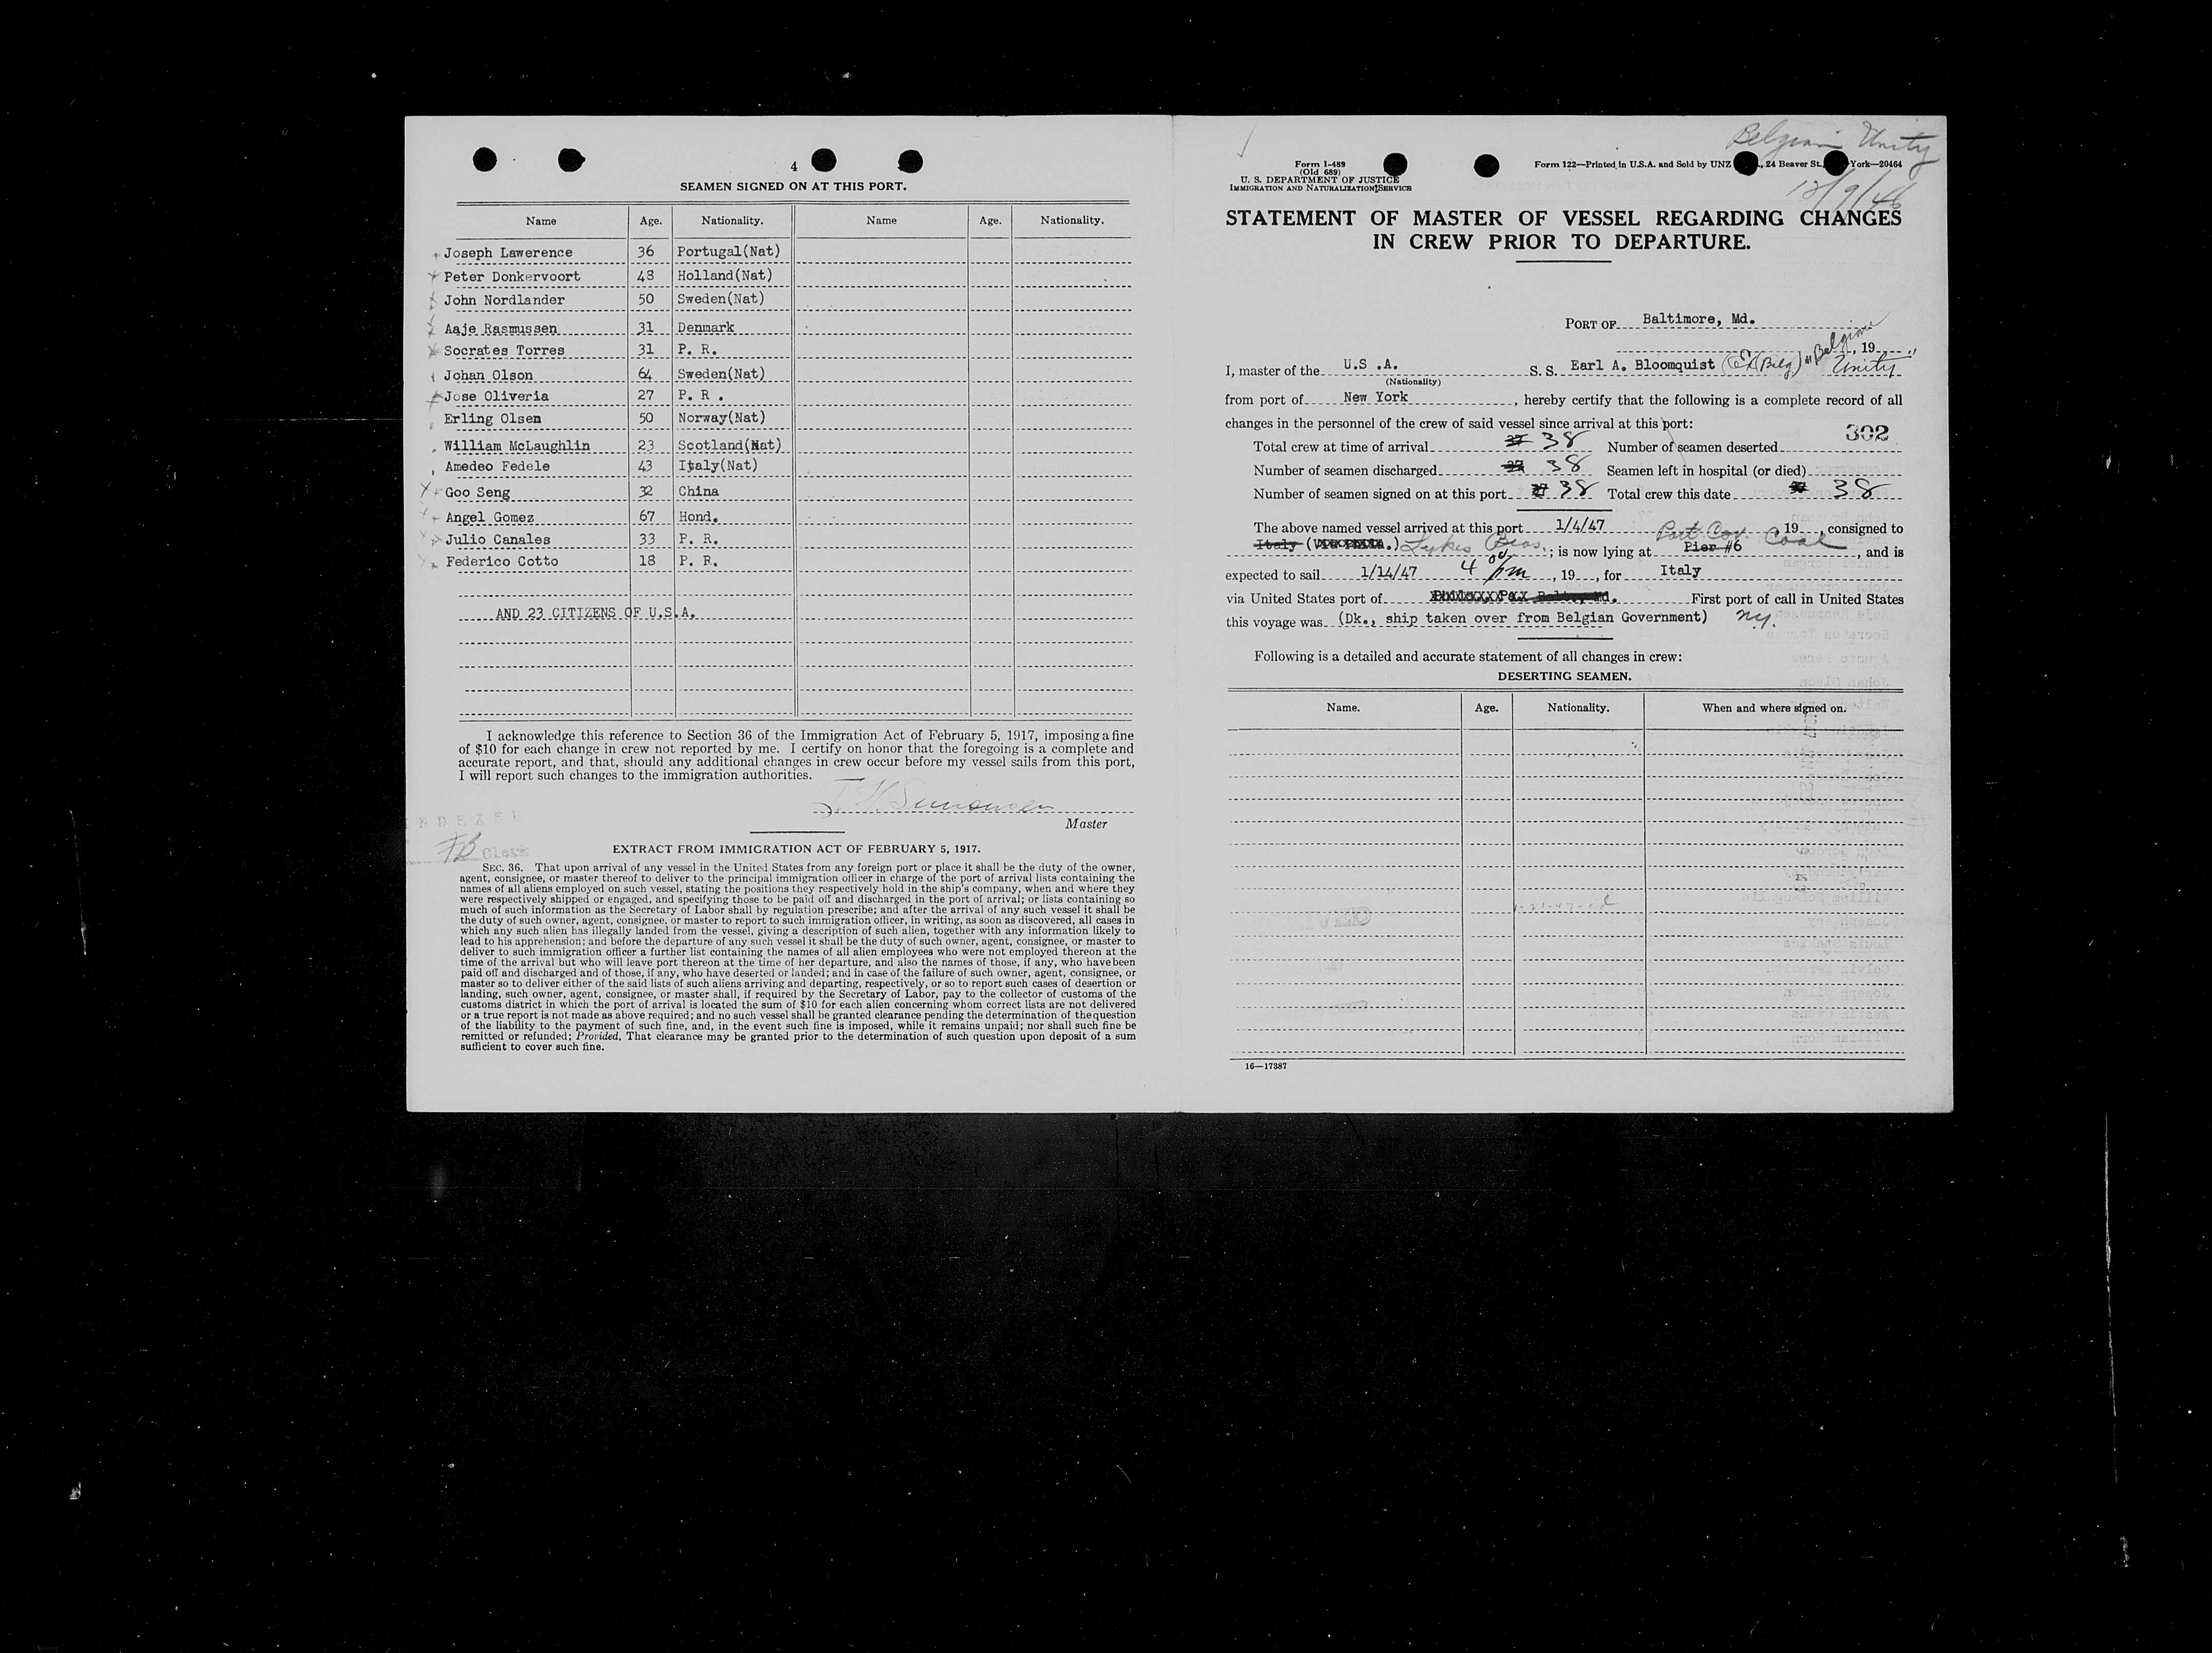 4
SEAMEN SIGNED ON AT THIS PORT.
Name Age. Nationality. Name Age. Nationality.
Joseph Lawerence 36 Portugal(Nat)
Peter Donkervoort 48 Holland(Nat)
John Nordlander 50 Sweden(Nat)
Aaje Rasmussen 31 Denmark
Socrates Torres 31 P. R.
Johan Olson 64 Sweden(Nat)
Jose Oliveria 27 P. R .
Erling Olsen 50 Norway(Nat)
William McLaughlin 23 Scotland(Nat)
Amedeo Fedele 43 Italy(Nat)
Goo Seng 32 China
Angel Gomez 67 Hond.
Julio Canales 33 P. R.
Federico Cotto 18 P. R.
AND 23 CITIZENS OF U.S.A.
I acknowledge this reference to Section 36 of the Immigration Act of February 5, 1917, imposing a fine
of $10 for each change in crew not reported by me. I certify on honor that the foregoing is a complete and
accurate report, and that, should any additional changes in crew occur before my vessel sails from this port,
I will report such changes to the immigration authorities.
Master
INDEXED
FB Clerk
EXTRACT FROM IMMIGRATION ACT OF FEBRUARY 5, 1917.
SEC. 36. That upon arrival of any vessel in the United States from any foreign port or place it shall be the duty of the owner,
agent, consignee, or master thereof to deliver to the principal immigration officer in charge of the port of arrival lists containing the
names of all aliens employed on such vessel, stating the positions they respectively hold in the ship's company, when and where they
were respectively shipped or engaged, and specifying those to be paid off and discharged in the port of arrival; or lists containing so
much of such information as the Secretary of Labor shall by regulation prescribe; and after the arrival of any such vessel it shall be
the duty of such owner, agent, consignee, or master to report to such immigration officer, in writing, as soon as discovered, all cases in
which any such alien has illegally landed from the vessel, giving a description of such alien, together with any information likely to
lead to his apprehension; and before the departure of any such vessel it shall be the duty of such owner, agent, consignee, or master to
deliver to such immigration officer a further list containing the names of all alien employees who were not employed thereon at the
time of the arrival but who will leave port thereon at the time of her departure, and also the names of those, if any, who have been
paid off and discharged and of those, if any, who have deserted or landed; and in case of the failure of such owner, agent, consignee, or
master so to deliver either of the said lists of such aliens arriving and departing, respectively, or so to report such cases of desertion or
landing, such owner, agent, consignee, or master shall, if required by the Secretary of Labor, pay to the collector of customs of the
customs district in which the port of arrival is located the sum of $10 for each alien concerning whom correct lists are not delivered
or a true report is not made as above required; and no such vessel shall be granted clearance pending the determination of the question
of the liability to the payment of such fine, and, in the event such fine is imposed, while it remains unpaid; nor shall such fine be
remitted or refunded; Provided, That clearance may be granted prior to the determination of such question upon deposit of a sum
sufficient to cover such fine.
Belgian Unity
12/9/46
Form I-489
(Old 689)
U. S. DEPARTMENT OF JUSTICE
IMMIGRATION AND NATURALIZATION SERVICE
Form 122—Printed in U.S.A. and Sold by UNZ 24 Beaver St., York—20464
STATEMENT OF MASTER OF VESSEL REGARDING CHANGES
IN CREW PRIOR TO DEPARTURE.
PORT OF Baltimore, Md.
, 19
I, master of the U.S .A. S. S. Earl A. Bloomquist (Ex (Belg) "Belgian Unity"
(Nationality)
from port of New York , hereby certify that the following is a complete record of all
changes in the personnel of the crew of said vessel since arrival at this port:
302
Total crew at time of arrival 37 38 Number of seamen deserted
Number of seamen discharged 37 38 Seamen left in hospital (or died)
Number of seamen signed on at this port 37 38 Total crew this date 38
The above named vessel arrived at this port 1/4/47 , 19 , consigned to
Italy Sykes Bros. ; is now lying at Pier #6 Port Cov. Coal , and is
expected to sail 1/14/47 4 00 pm , 19 , for Italy
via United States port of Balto., Md. First port of call in United States
this voyage was (Dk., ship taken over from Belgian Government) N.Y.
Following is a detailed and accurate statement of all changes in crew:
DESERTING SEAMEN.
Name. Age. Nationality. When and where signed on.
16—17387